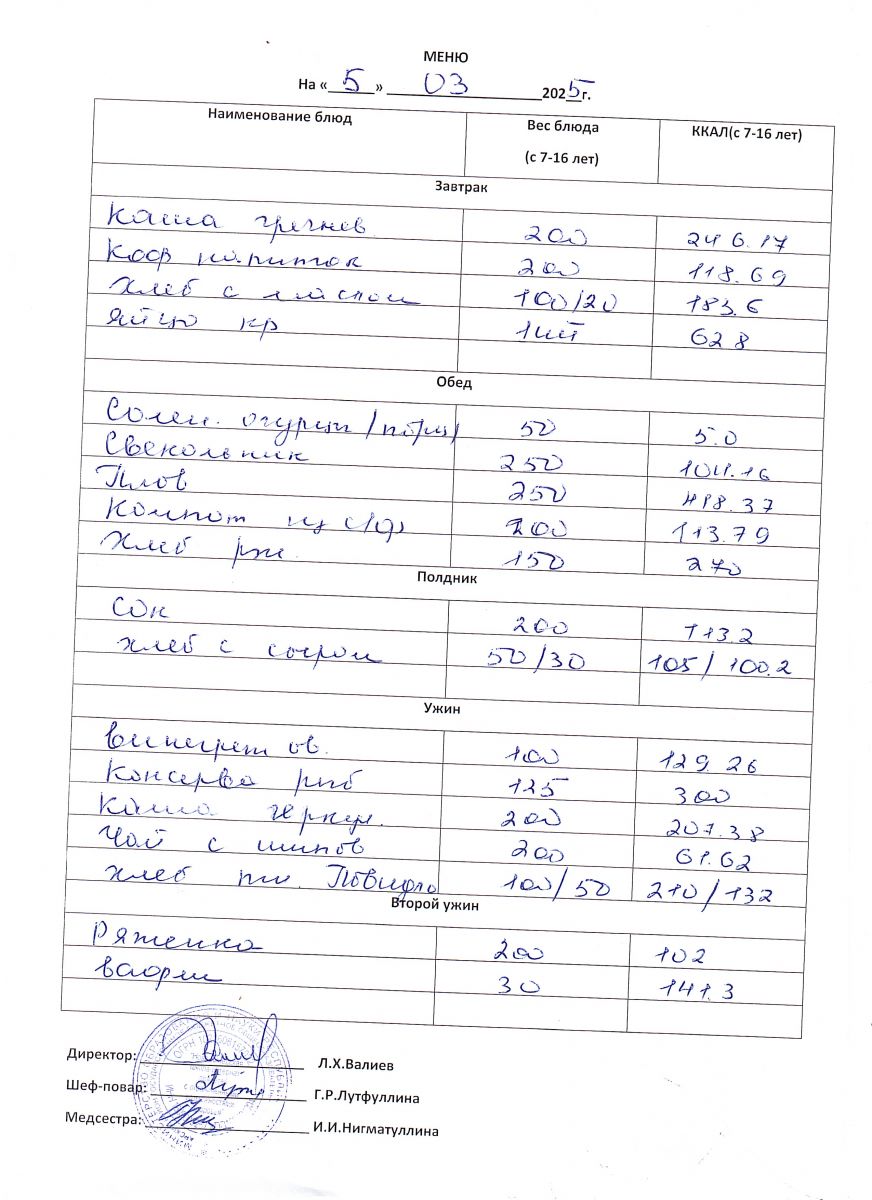 МЕНЮ
На « 5 » 03 2025г.
Наименование блюд Вес блюда (с 7-16 лет) ККАЛ(с 7-16 лет)
Завтрак
Каша гречнев. 200 246.17
Коф напиток 200 118.69
Хлеб с маслом 100/20 183.6
Яйцо кр 1шт 62.8
Обед
Солен. огурцы /пом/ 50 5.0
Свекольник 250 104.16
Плов 250 418.37
Компот из с/ф 200 113.79
Хлеб рж. 150 270
Полдник
Сок 200 113.2
Хлеб с сыром 50/30 105/100.2
Ужин
Винегрет ов. 100 129.26
Консерва рыб 125 300
Каша геркул. 200 207.38
Чай с шипов 200 61.62
Хлеб пш. Повидло 100/50 210/132
Второй ужин
Ряженка 200 102
Вафли 30 141.3
Директор: Л.Х.Валиев
Шеф-повар: Г.Р.Лутфуллина
Медсестра: И.И.Нигматуллина